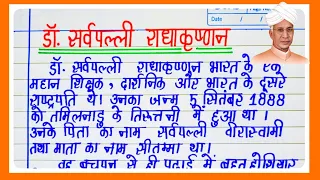 डॉ. सर्वपल्ली राधाकृष्णन
डॉ. सर्वपल्ली राधाकृष्णन भारत के एक
महान शिक्षक, दार्शनिक और भारत के दूसरे
राष्ट्रपति थे। उनका जन्म 5 सितंबर 1888
को तमिलनाडु के तिरुत्तनी में हुआ था।
उनके पिता का नाम सर्वपल्ली वीरास्वामी
तथा माता का नाम सीतम्मा था।
वह बचपन से ही पढ़ाई में बहुत होशियार